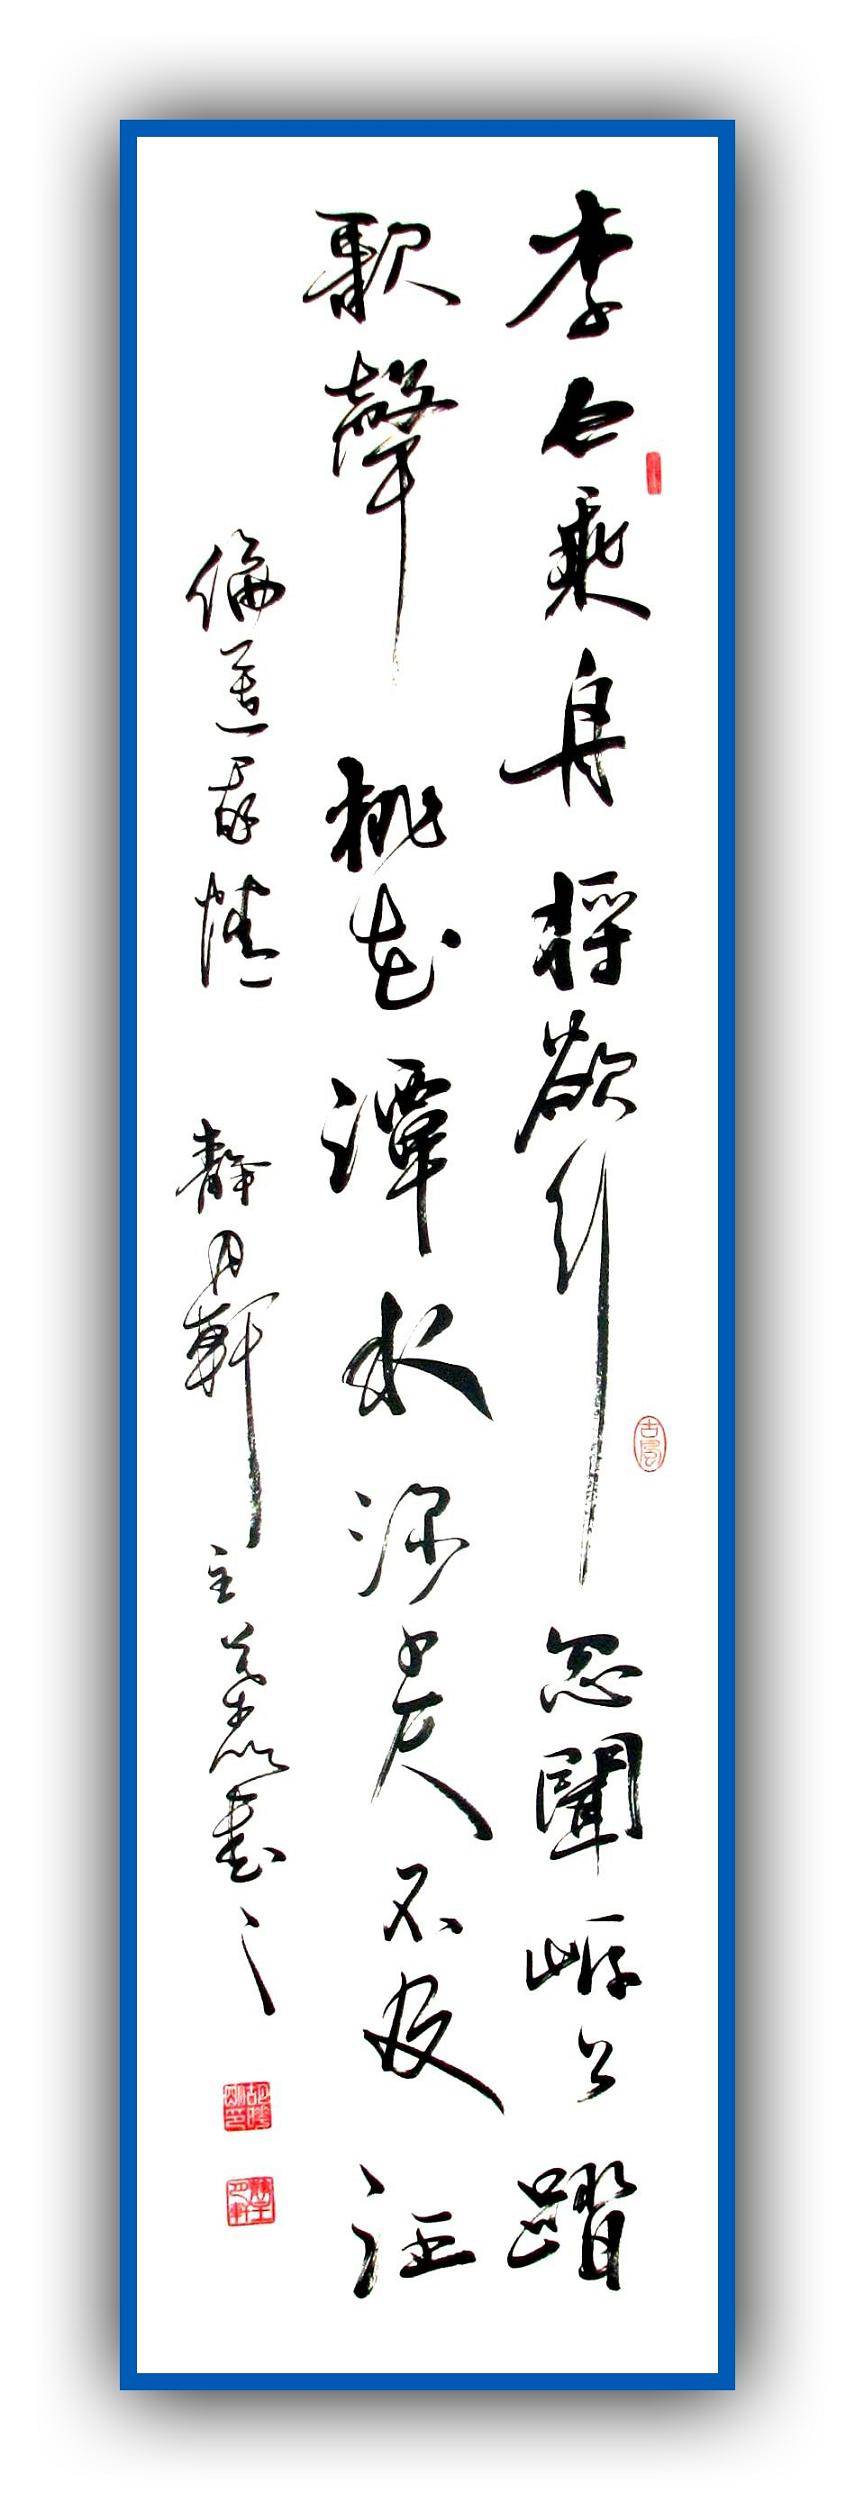 李白乘舟將欲行忽聞岸上踏
歌聲桃花潭水深千尺不及汪
倫送我情 靜月軒主 書
古風